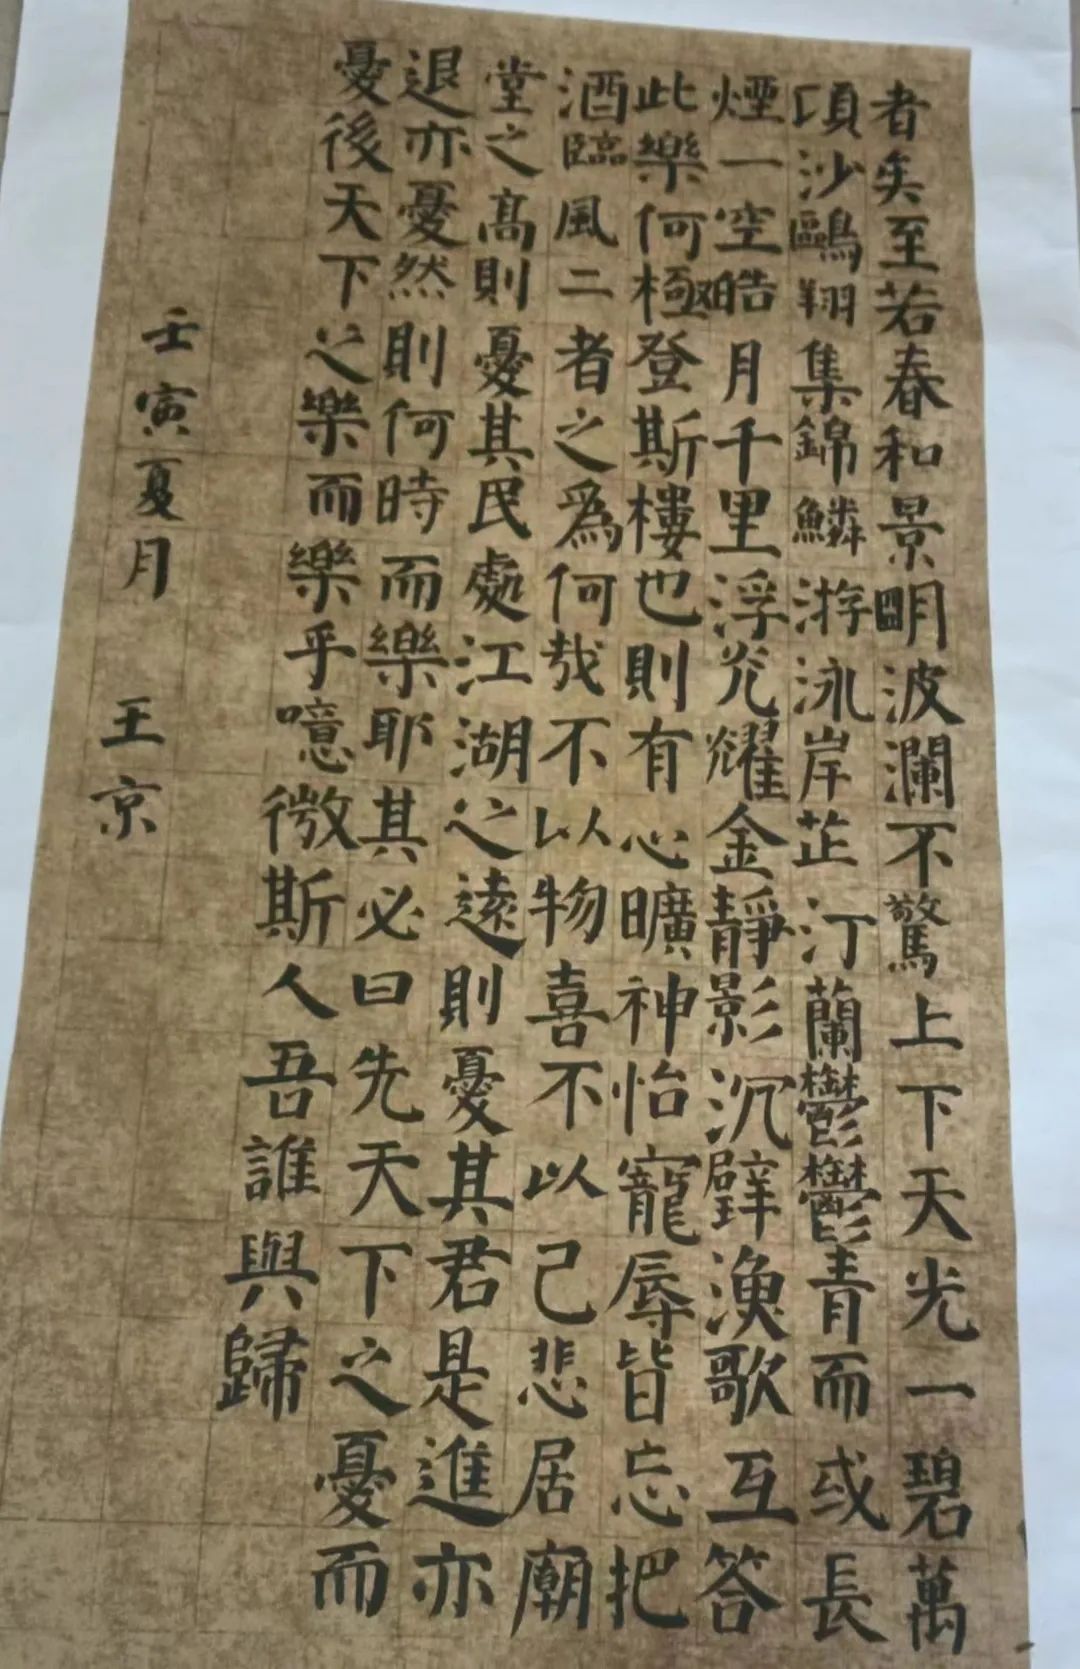 者矣至若春和景明波瀾不驚上下天光一碧萬
頃沙鷗翔集錦鱗游泳岸芷汀蘭鬱鬱青而或長
煙一空皓月千里浮光耀金靜影沉璧漁歌互答
此樂何極登斯樓也則有心曠神怡寵辱皆忘把
酒臨風二者之爲何哉不以物喜不以己悲居廟
堂之高則憂其民處江湖之遠則憂其君是進亦
退亦憂然則何時而樂耶其必曰先天下之憂而
憂後天下之樂而樂乎噫微斯人吾誰與歸
壬寅夏月 王京